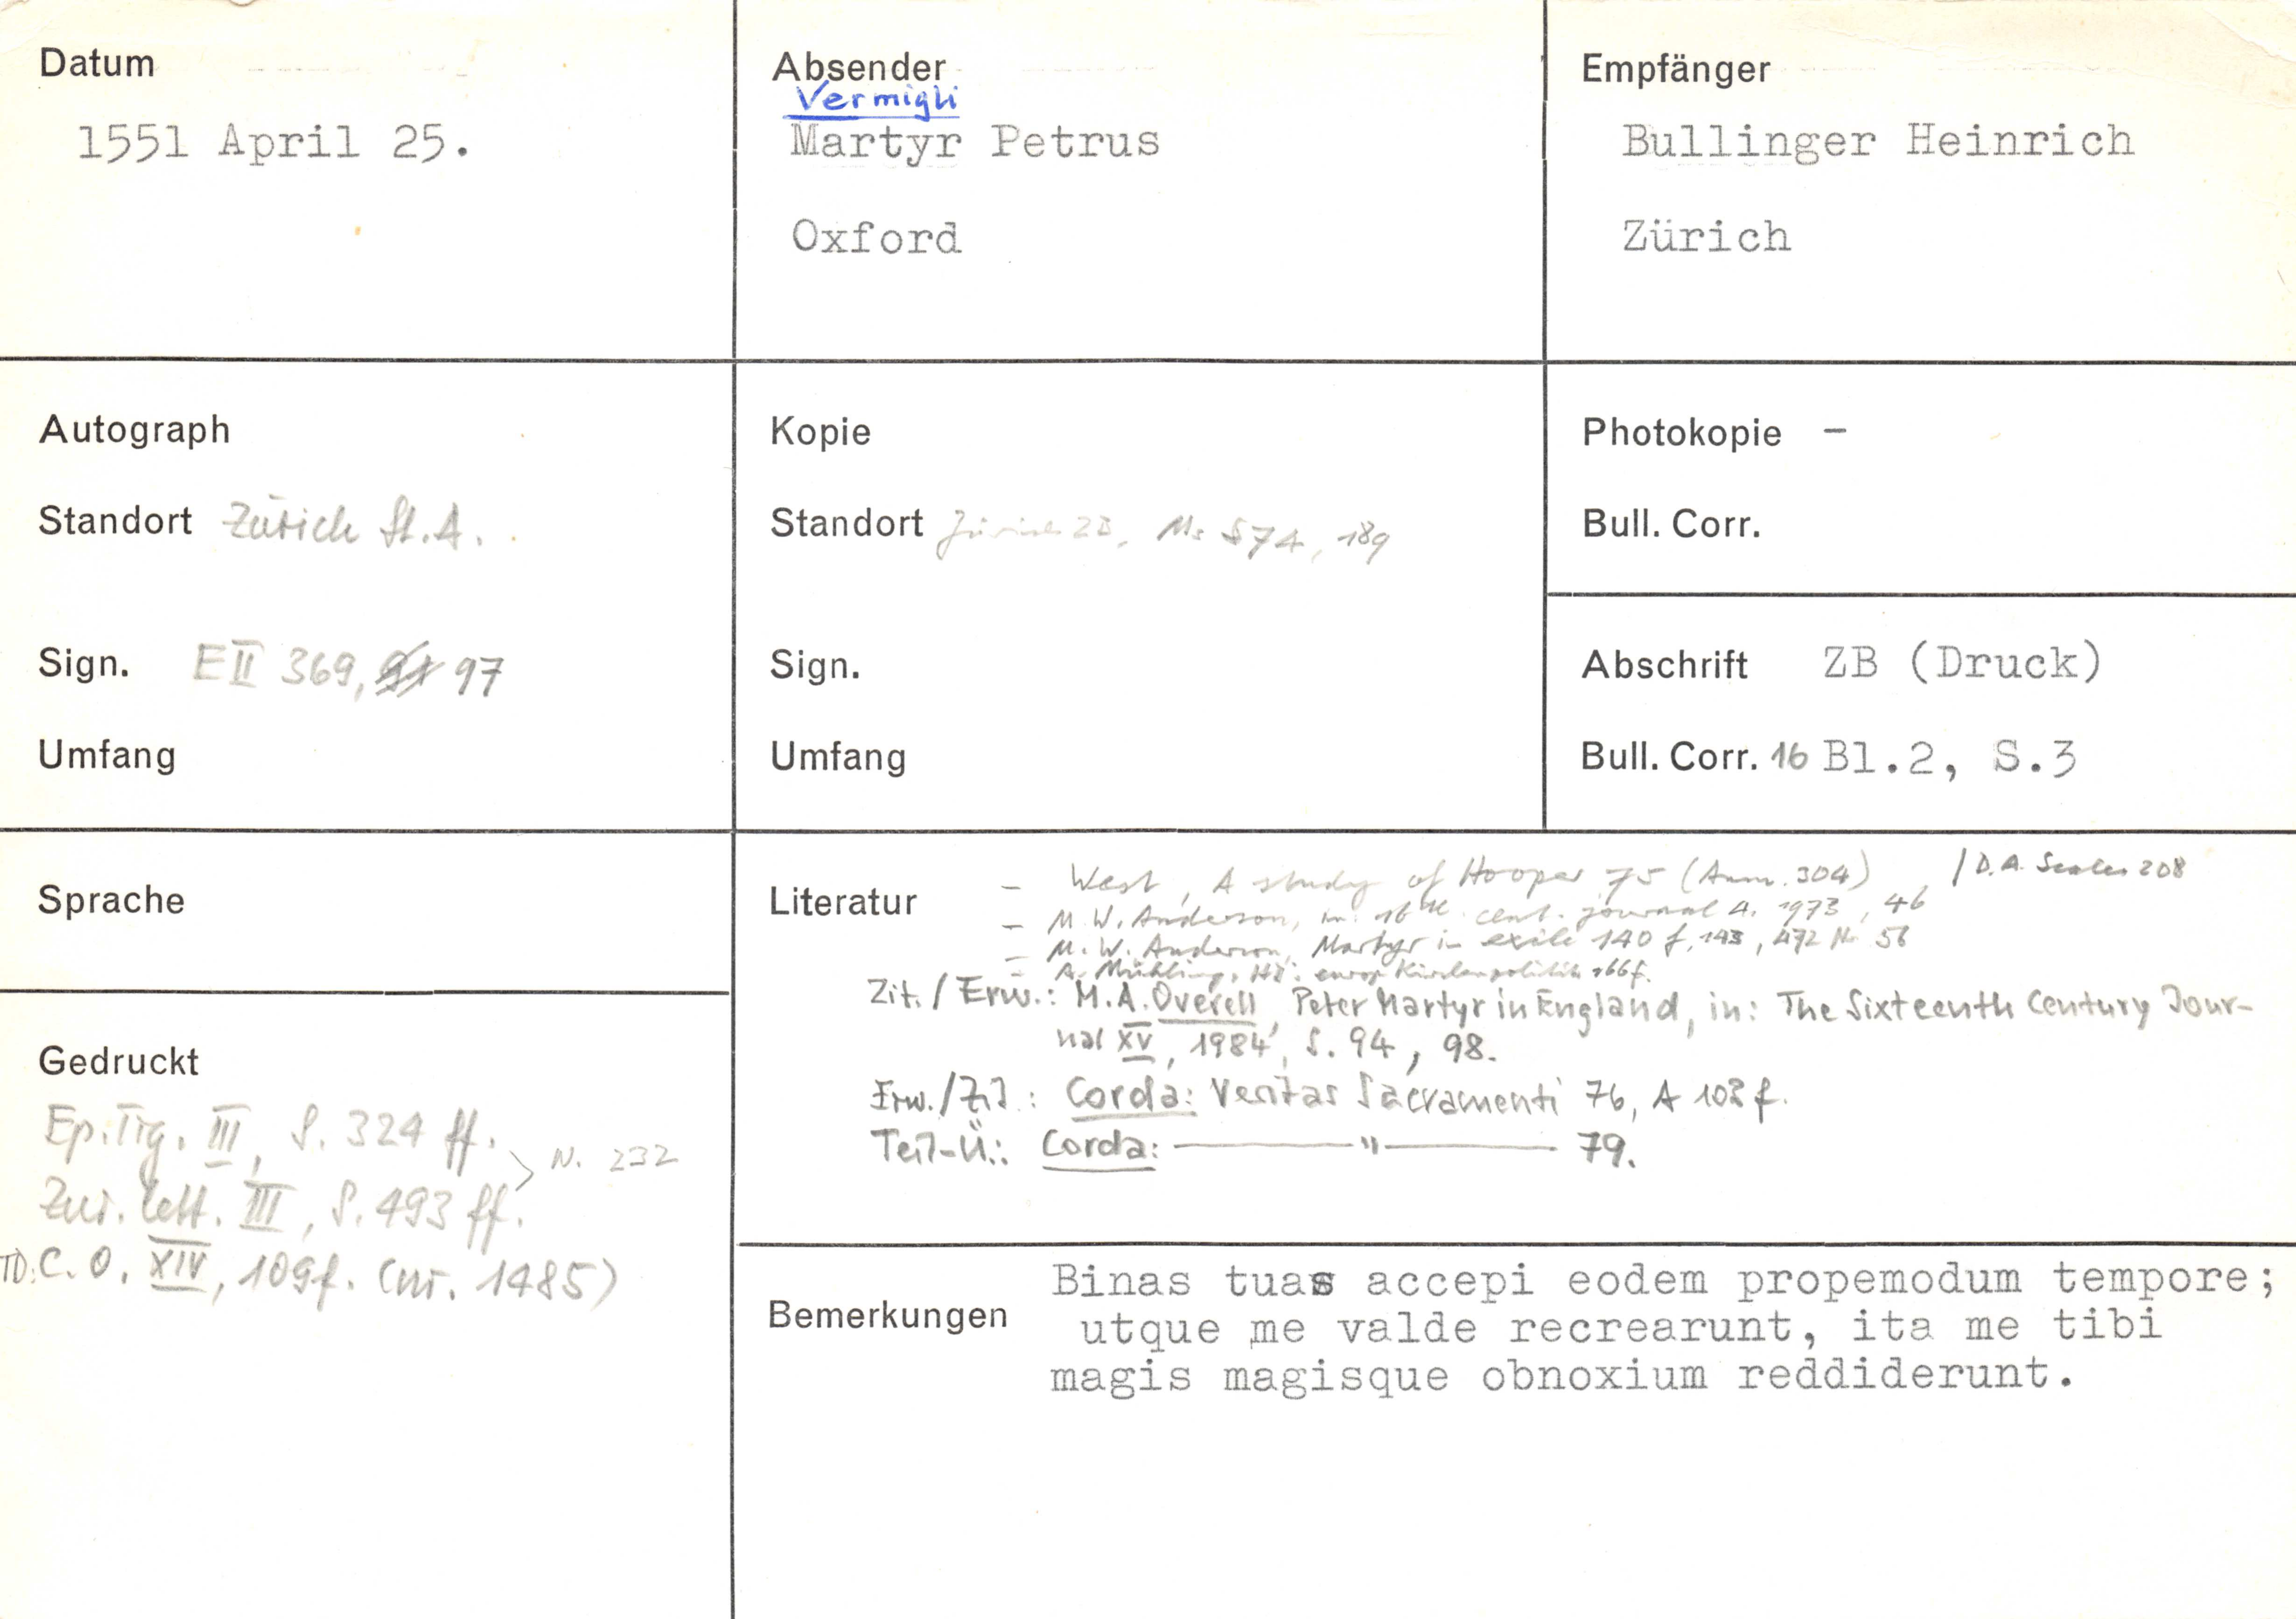 Datum
1551 April 25.
Absender
Vermigli
Martyr Petrus
Oxford
Empfänger
Bullinger Heinrich
Zürich
Autograph
Standort Zürich St.A.
Sign. E II 369, 97
Umfang
Kopie
Standort Zürich ZB, Ms S 74, 189
Sign.
Umfang
Photokopie –
Bull. Corr.
Abschrift ZB (Druck)
Bull. Corr. 16 Bl.2, S.3
Sprache
Gedruckt
Ep. Tig. III, S. 324 ff.
N. 232
Zur. lett. III, S. 493 ff.
TD: C. O. XIV, 109f. (nr. 1485)
Literatur
– West, A study of Hooper 75 (Anm. 304) / D. A. 208
– M. W. Anderson, in: 16th cent. journal 4, 1973, 46
– M. W. Anderson, Martyr in exile 140 f, 143, 472 Nr 56
– A. Mühling, HB. europ Kirchenpolitik 166f.
Zit. / Erw.: M.A. Overell, Peter Martyr in England, in: The Sixteenth Century Jour-
nal XV, 1984, S. 94, 98.
Erw./Zit.: Corda: Veritas Sacramenti 76, A 103 f.
Teil-Ü.: Corda: ——— " ——— 79.
Bemerkungen
Binas tuas accepi eodem propemodum tempore;
utque me valde recrearunt, ita me tibi
magis magisque obnoxium reddiderunt.